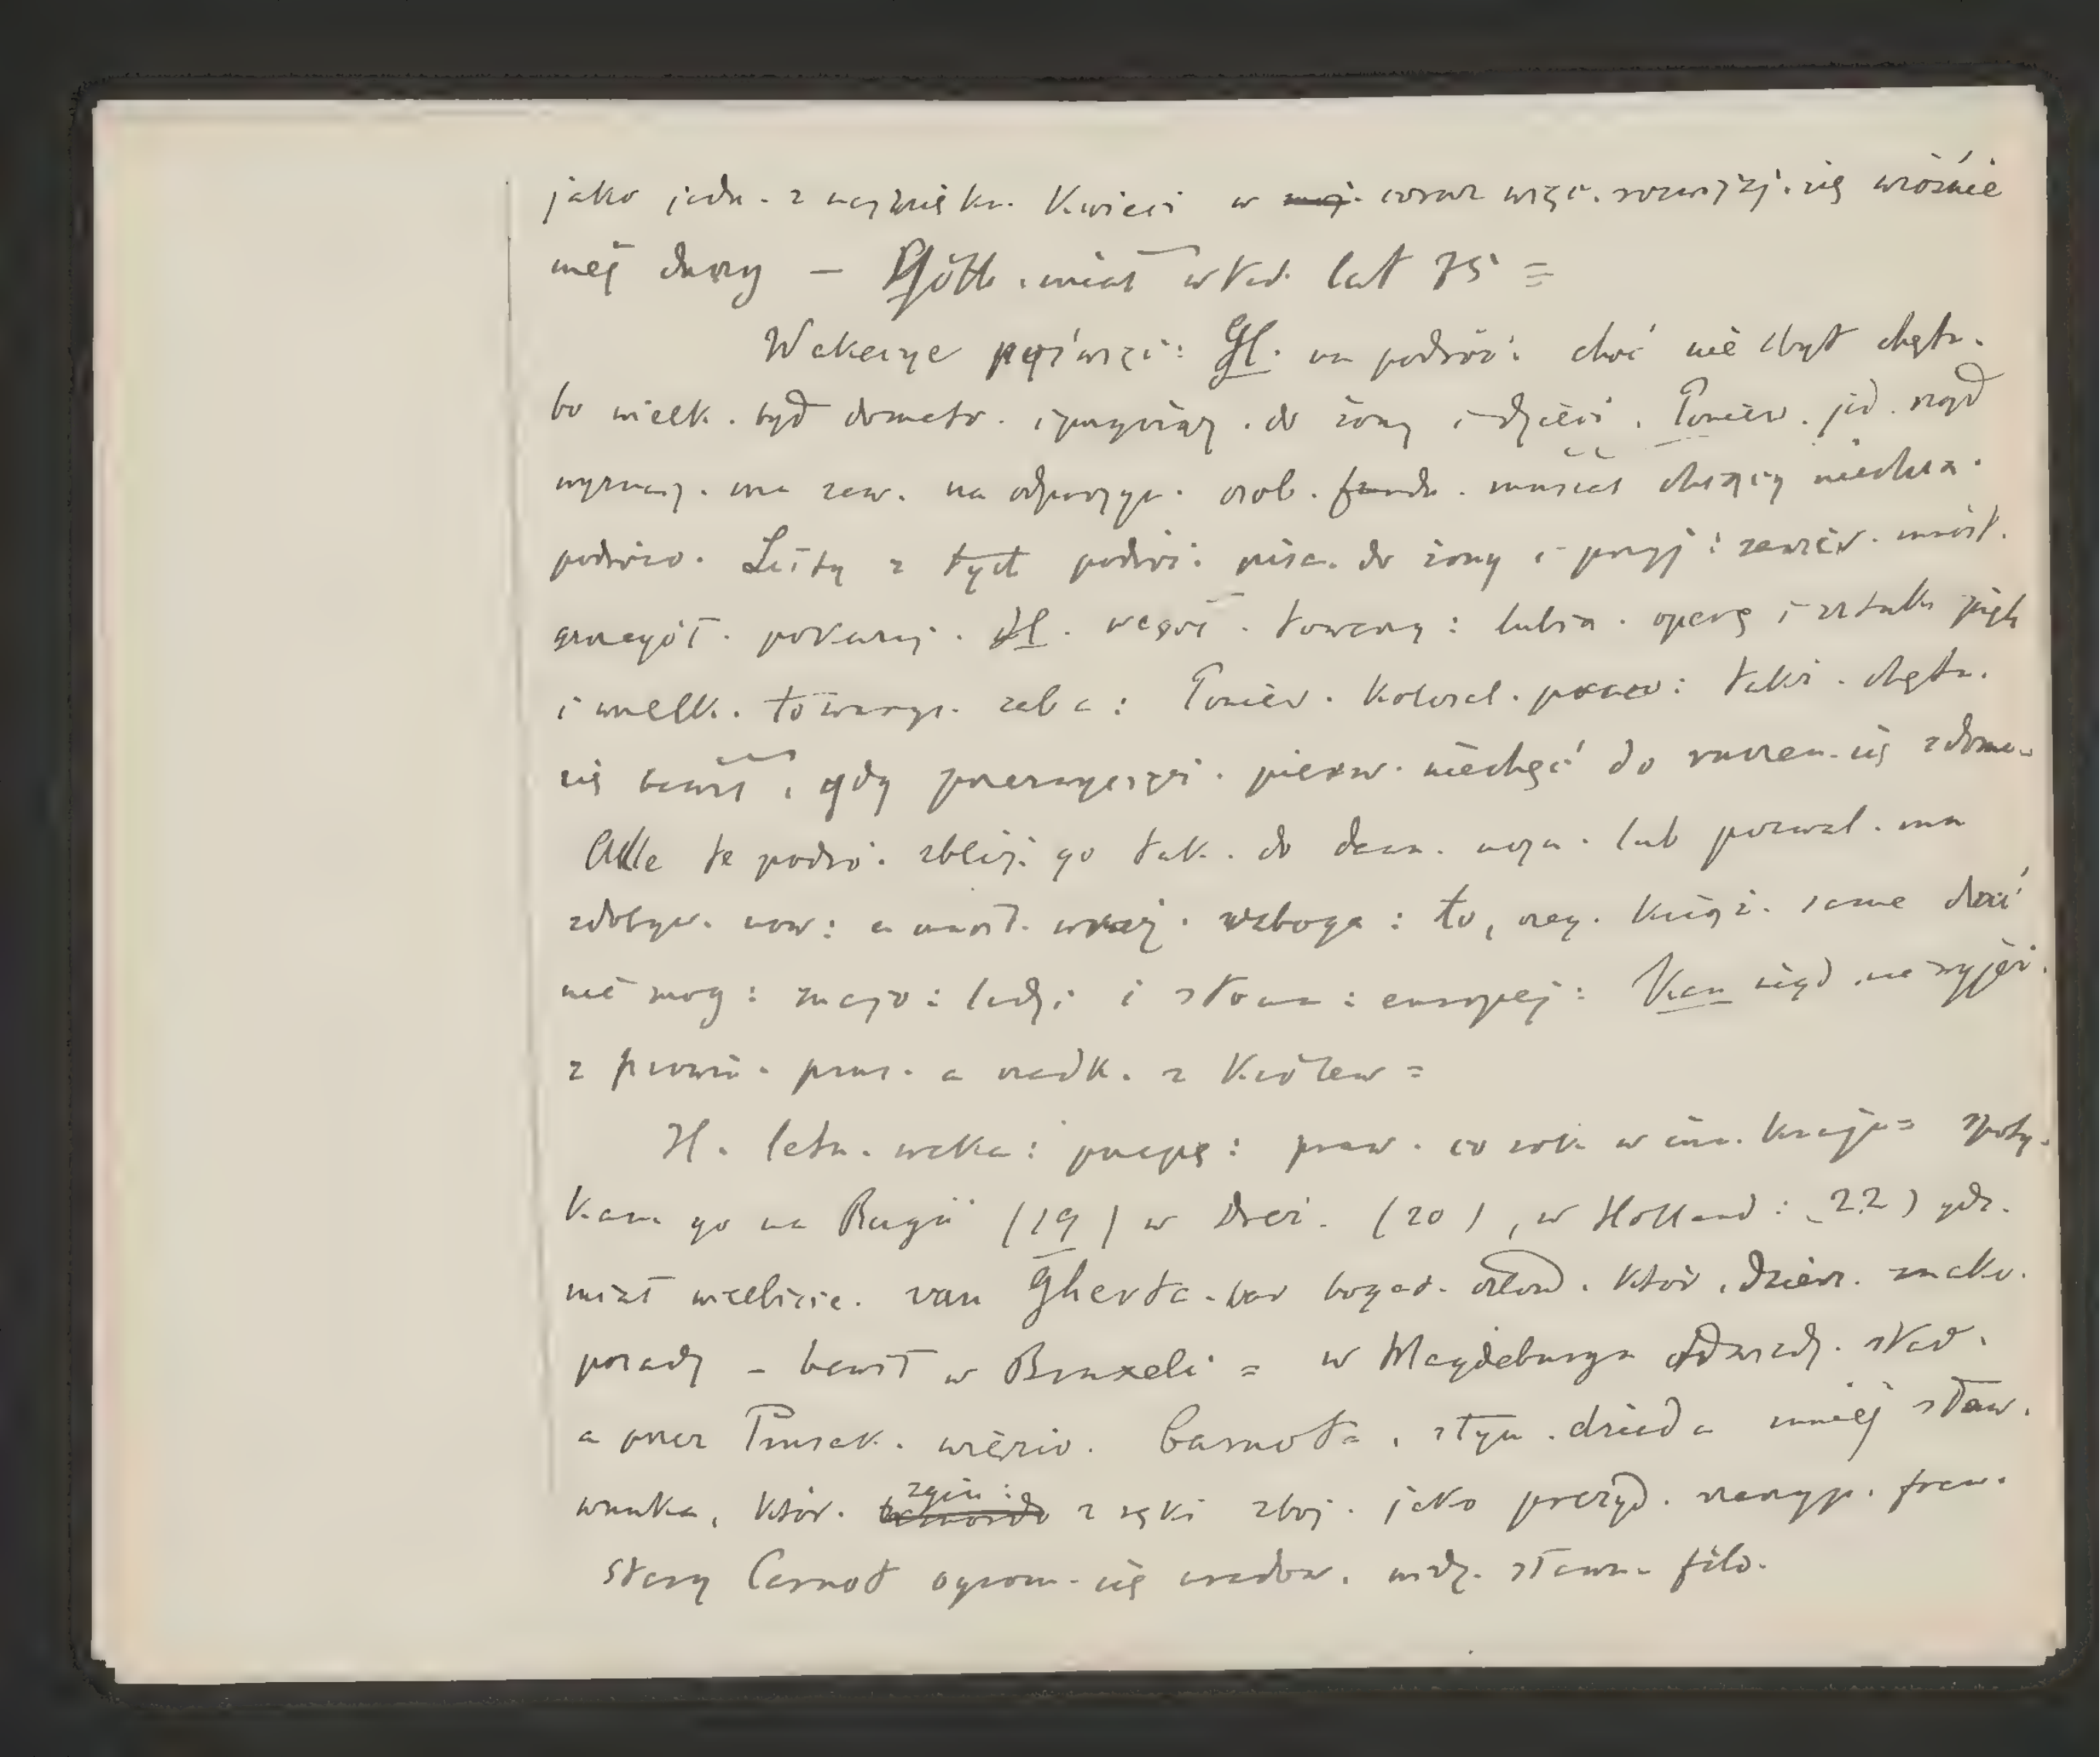 jako jedn. z najpięk. kwieci w ~~moj.~~ coraz więc. rozwijaj. się wiośnie
mej duszy — Göth. miał wted. lat 75 =
Wakacye poświęc: Hl. na podróż: choć nie zbyt chętn.
bo wielk. był domato. i przywiąz. do żony i dzieci. Poniew. jed. rząd
wyznacz. mu zaw. na odpoczyn. osob. fundu. musiał chcący niechcą.
podróżo. Listy z tych podró: pisa. do żony i przyj: zawier. mnóst.
szczegół. pokazuj. Hl. wesoł. towarzy: lubią. operę i sztuki pięk
i wielk. towarzys. zaba: Poniew. kolosal. praco: także. chętn.
się bawił, gdy przezwycięż. pierw. niechęć do ruszen. się z domu.
Ale te podró: zbliż. go tak. do dawn. uczn. lub pozwal. mu
zdobyw. now: a mnóst. wraż. wzboga: to, czeg. książ. same dać
nie mog: znajo: ludzi i stosun: europej: Kan nigd. nie wyjeż.
z prowin. prus. a rzadk. z Królew =
H. letn. waka: przepę: praw. co rok w inn. kraju = spoty.
kam. go na Rugii (19) w Dreź. (20), w Holland: (22) gdz.
miał wielbicie. van Gherta. bar bogat. człow. któr. dzier. znako.
posady – bawił w Bruxeli = w Magdeburgu odwiedz. star.
a przez Prusak. więzio. Carnota, słyn. dziada mniej sław.
wnuka, któr. zginą: z ręki zbój. jako prezyd. rzeczyp. fran.
stary Carnot ogrom. się uradow. widz. sławn. filo.